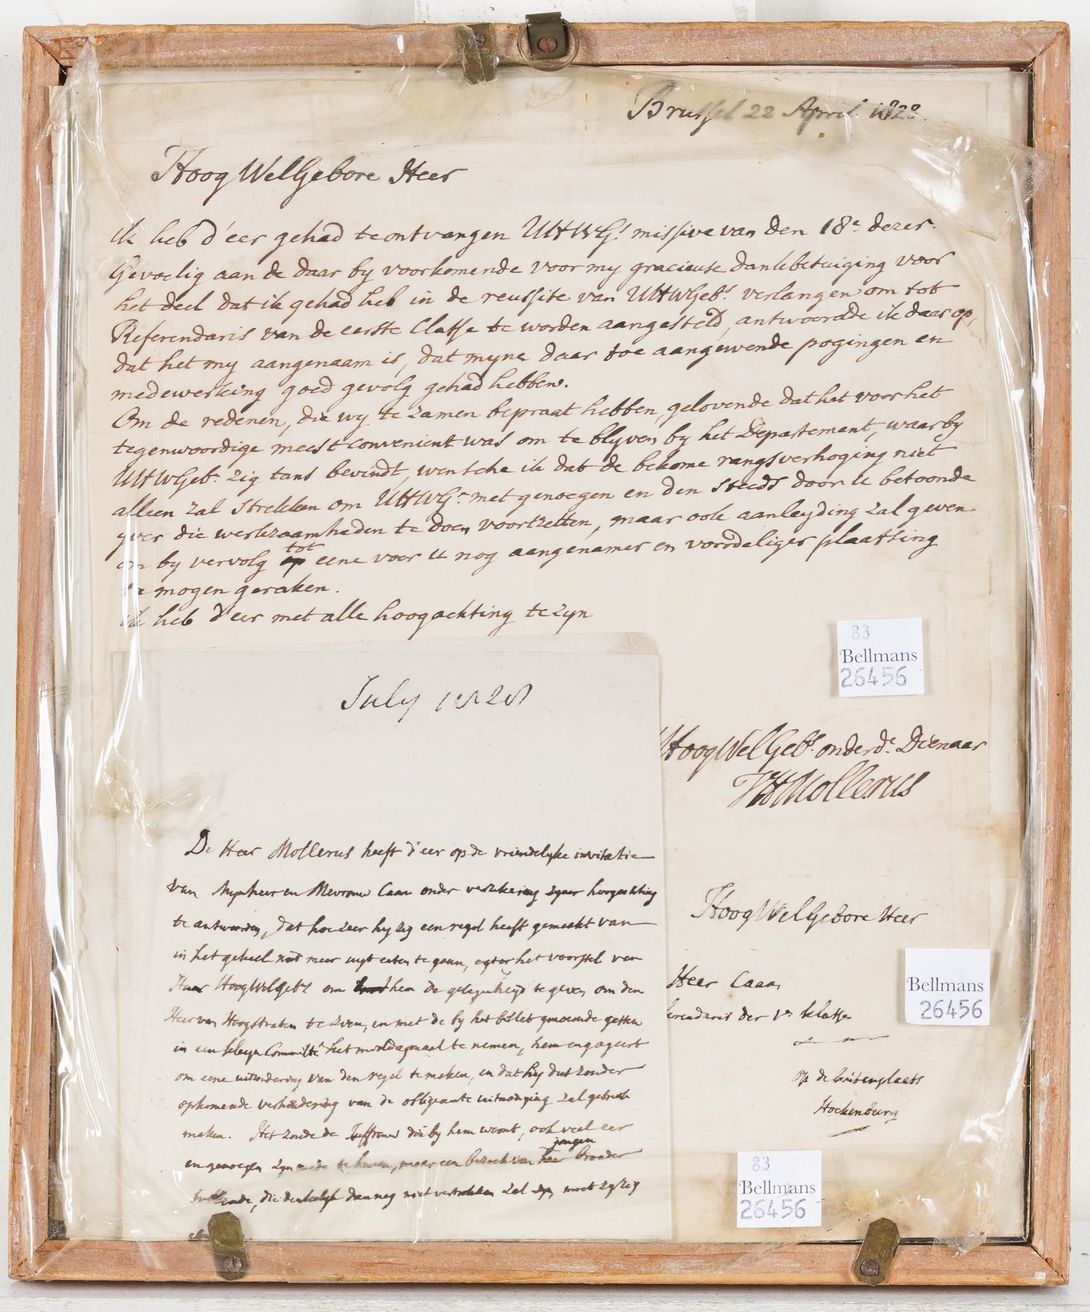 Brussel 22 April 1828.
Hoog WelGebore Heer
ik heb d'eer gehad te ontvangen UHWGs missive van den 18e dezer.
Gevoelig aan de daar by voorkomende voor my gracieuse dankbetuiging voor
het deel dat ik gehad heb in de reussite van UHWGebs verlangen om tot
Referendaris van de eerste Classe te worden aangesteld, antwoorde ik daar op,
dat het my aangenaam is, dat myne daar toe aangewende pogingen en
medewerking goed gevolg gehad hebben.
Om de redenen, die wy te zamen bepraat hebben, gelovende dat het voor het
tegenwoordige meest convenient was om te blyven by het Departement, waar by
UHWGeb. zig tans bevindt, wensche ik dat de bekome rangsverhoging niet
alleen zal strekken om UHWGr met genoegen en den steeds door U betoonde
yver die werkzaamheden te doen voortzetten, maar ook aanleyding zal geven
om by vervolg tot eene voor U nog aangenamer en voordeliger plaatsing
te mogen geraken.
ik heb d'eer met alle hoogachting te zyn
83
Bellmans
26456
July 1828
HoogWelGebs onderde Dienaar
Mollerus
De Heer Mollerus heeft d'eer op de vriendelyke invitatie
van Mynheer en Mevrouw Caan onder verzekering zyner hoogachting
te antwoorden, dat hoe zeer hy zig een regel heeft gemaakt van
in het geheel niet meer uyt eeten te gaan, egter het voorstel van
Haar HoogWelGebs om hem de gelegenheyd te geven om den
Heer van Hoogstraten te zien, en met de by het billet genoemde gasten
in een kleyn Committé het middagmaal te nemen, hem engageert
om eene uitzondering van den regel te maken, en dat hy dus zonder
opkomende verhindering van de obligeante uitnodiging zal gebruik
maken. Het zoude de Juffrouw die by hem woont, ook veel eer
en genoegen zyn mede te komen, maar een bezoek van haar jongen broeder
die denkelyk dan nog niet vertrokken zal zyn moet zy zig
Hoog WelGebore Heer
Heer Caan
der 1e klasse
op de buitenplaats
Hockenburg
Bellmans
26456
83
Bellmans
26456